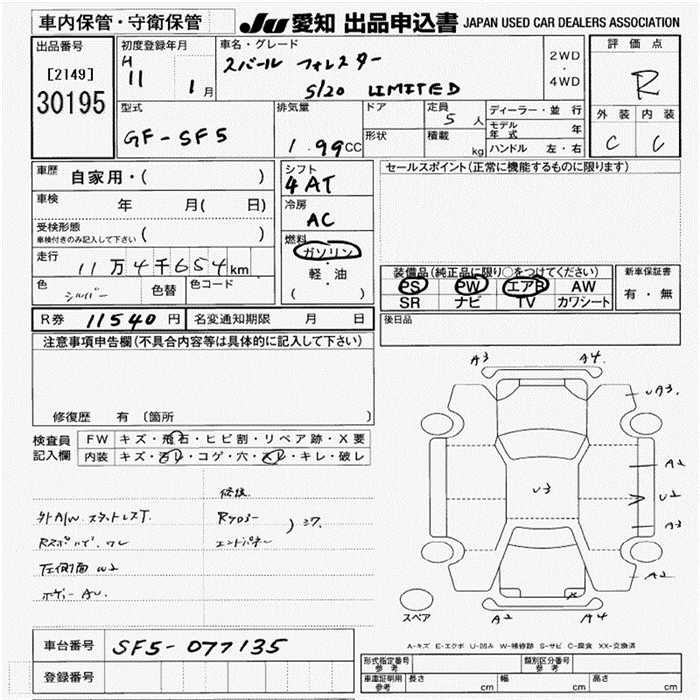 車内保管・守衛保管
JU 愛知 出品申込書 JAPAN USED CAR DEALERS ASSOCIATION
出品番号
[2149]
30195
初度登録年月
H 11 1月
車名・グレード
スバール フォレスター
S/20 LIMITED
2WD
・
4WD
評価点
R
外装 内装
C C
型式
GF-SF5
排気量
1.99CC
ドア
形状
定員
5人
積載
kg
ディーラー・並行
モデル年式 年
ハンドル 左・右
車歴
自家用・( )
車検
年 月( 日)
受検形態
車検付きのみ記入して下さい ( )
走行
11万4千654km
色
シルバー
色替
色コード
シフト
4AT
冷房
AC
燃料
ガソリン
・
軽・油
( )
セールスポイント(正常に機能するものに限ります)
装備品(純正品に限り○をつけてください)
PS PW エアB AW
SR ナビ TV カワシート
新車保証書
有・無
R券 11540円
名変通知期限 月 日
後日品
注意事項申告欄(不具合内容等は具体的に記入して下さい)
修復歴 有〔箇所 〕
検査員
記入欄
FW キズ・飛石・ヒビ割・リペア跡・X要
内装 キズ・ヨゴレ・コゲ・穴・スレ・キレ・破レ
修復
外A/W スタットレスT.
左側面 W2
エンドパネル
A3 A4
UA3
A2
U3
U2
A3
A2
A2 A4
スペア
A-キズ E-エクボ U-凹み W-補修跡 S-サビ C-腐食 XX-交換済
車台番号 SF5-077135
登録番号
形式指定番号 参考
類別区分番号 参考
車庫証明用 参考
長さ cm 幅 cm 高さ cm